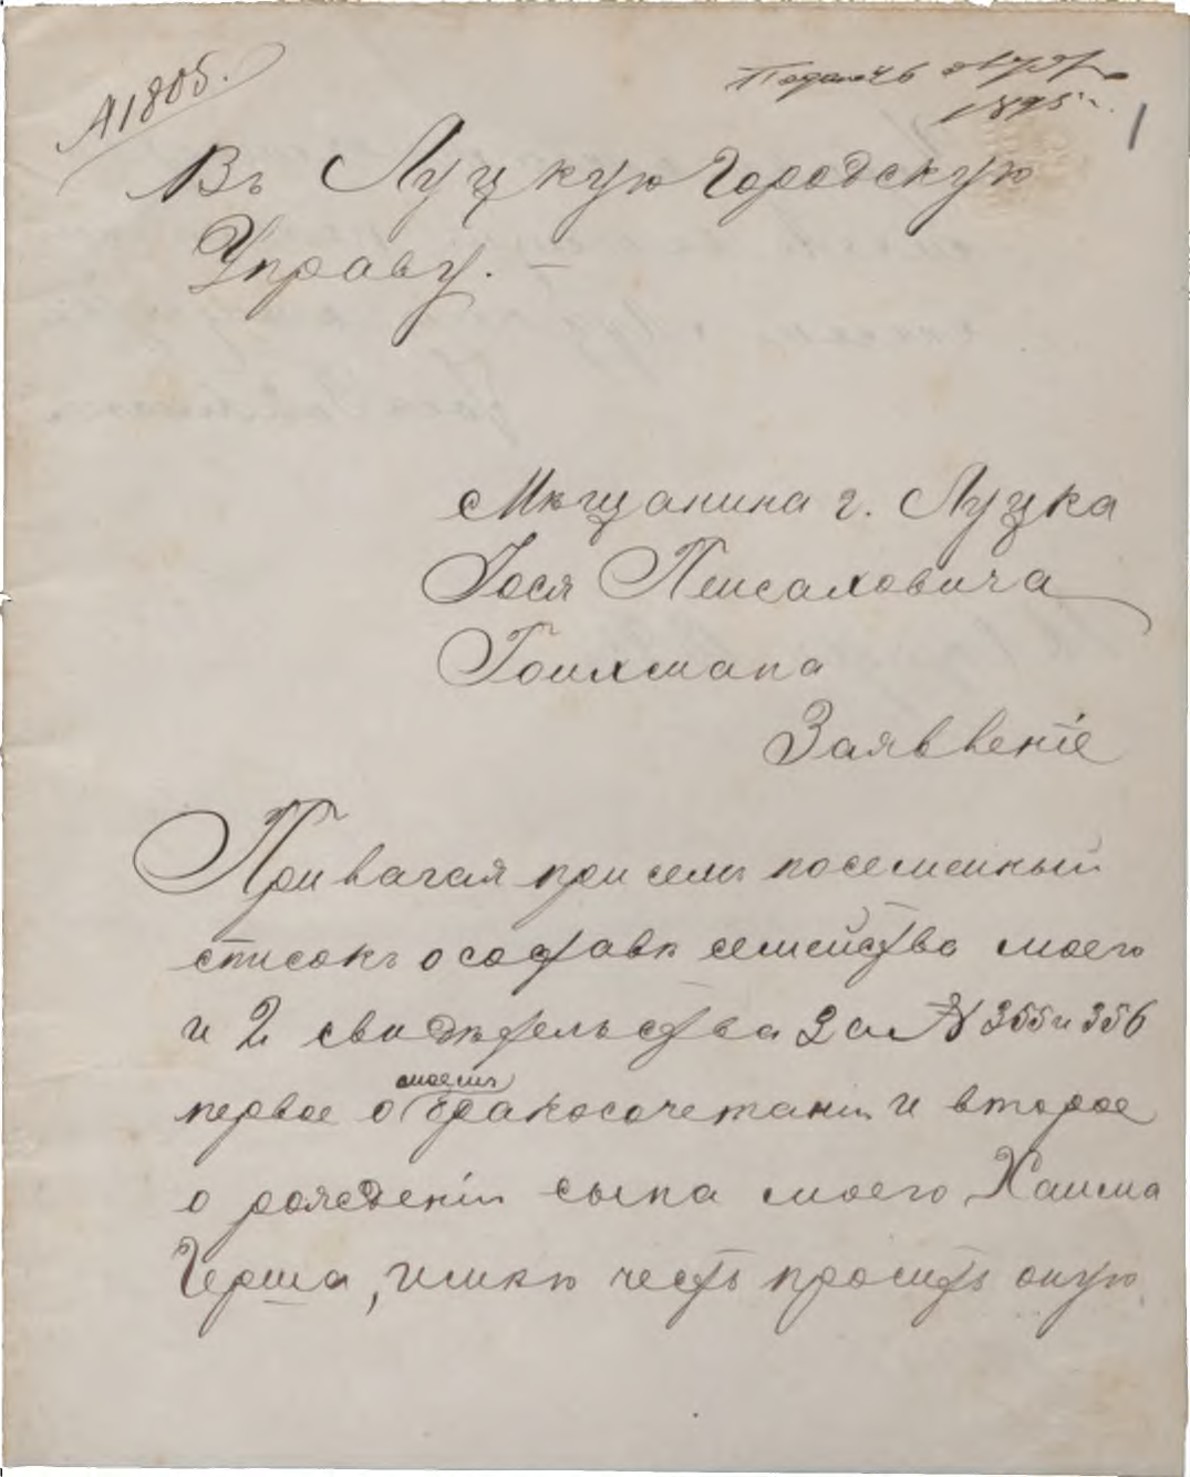 №1805.
1895 г.
1
Въ Луцкую Городскую
Управу.
Мѣщанина г. Луцка
Іося Пейсаховича
Гойхмана
Заявленіе
Прилагая при семъ посемейный
списокъ о составѣ семейства моего
и 2 свидѣтельства за № 355 и 356
моемъ
первое о бракосочетаніи и второе
о рожденіи сына моего Хаима
Герша, имѣю честь просить оную